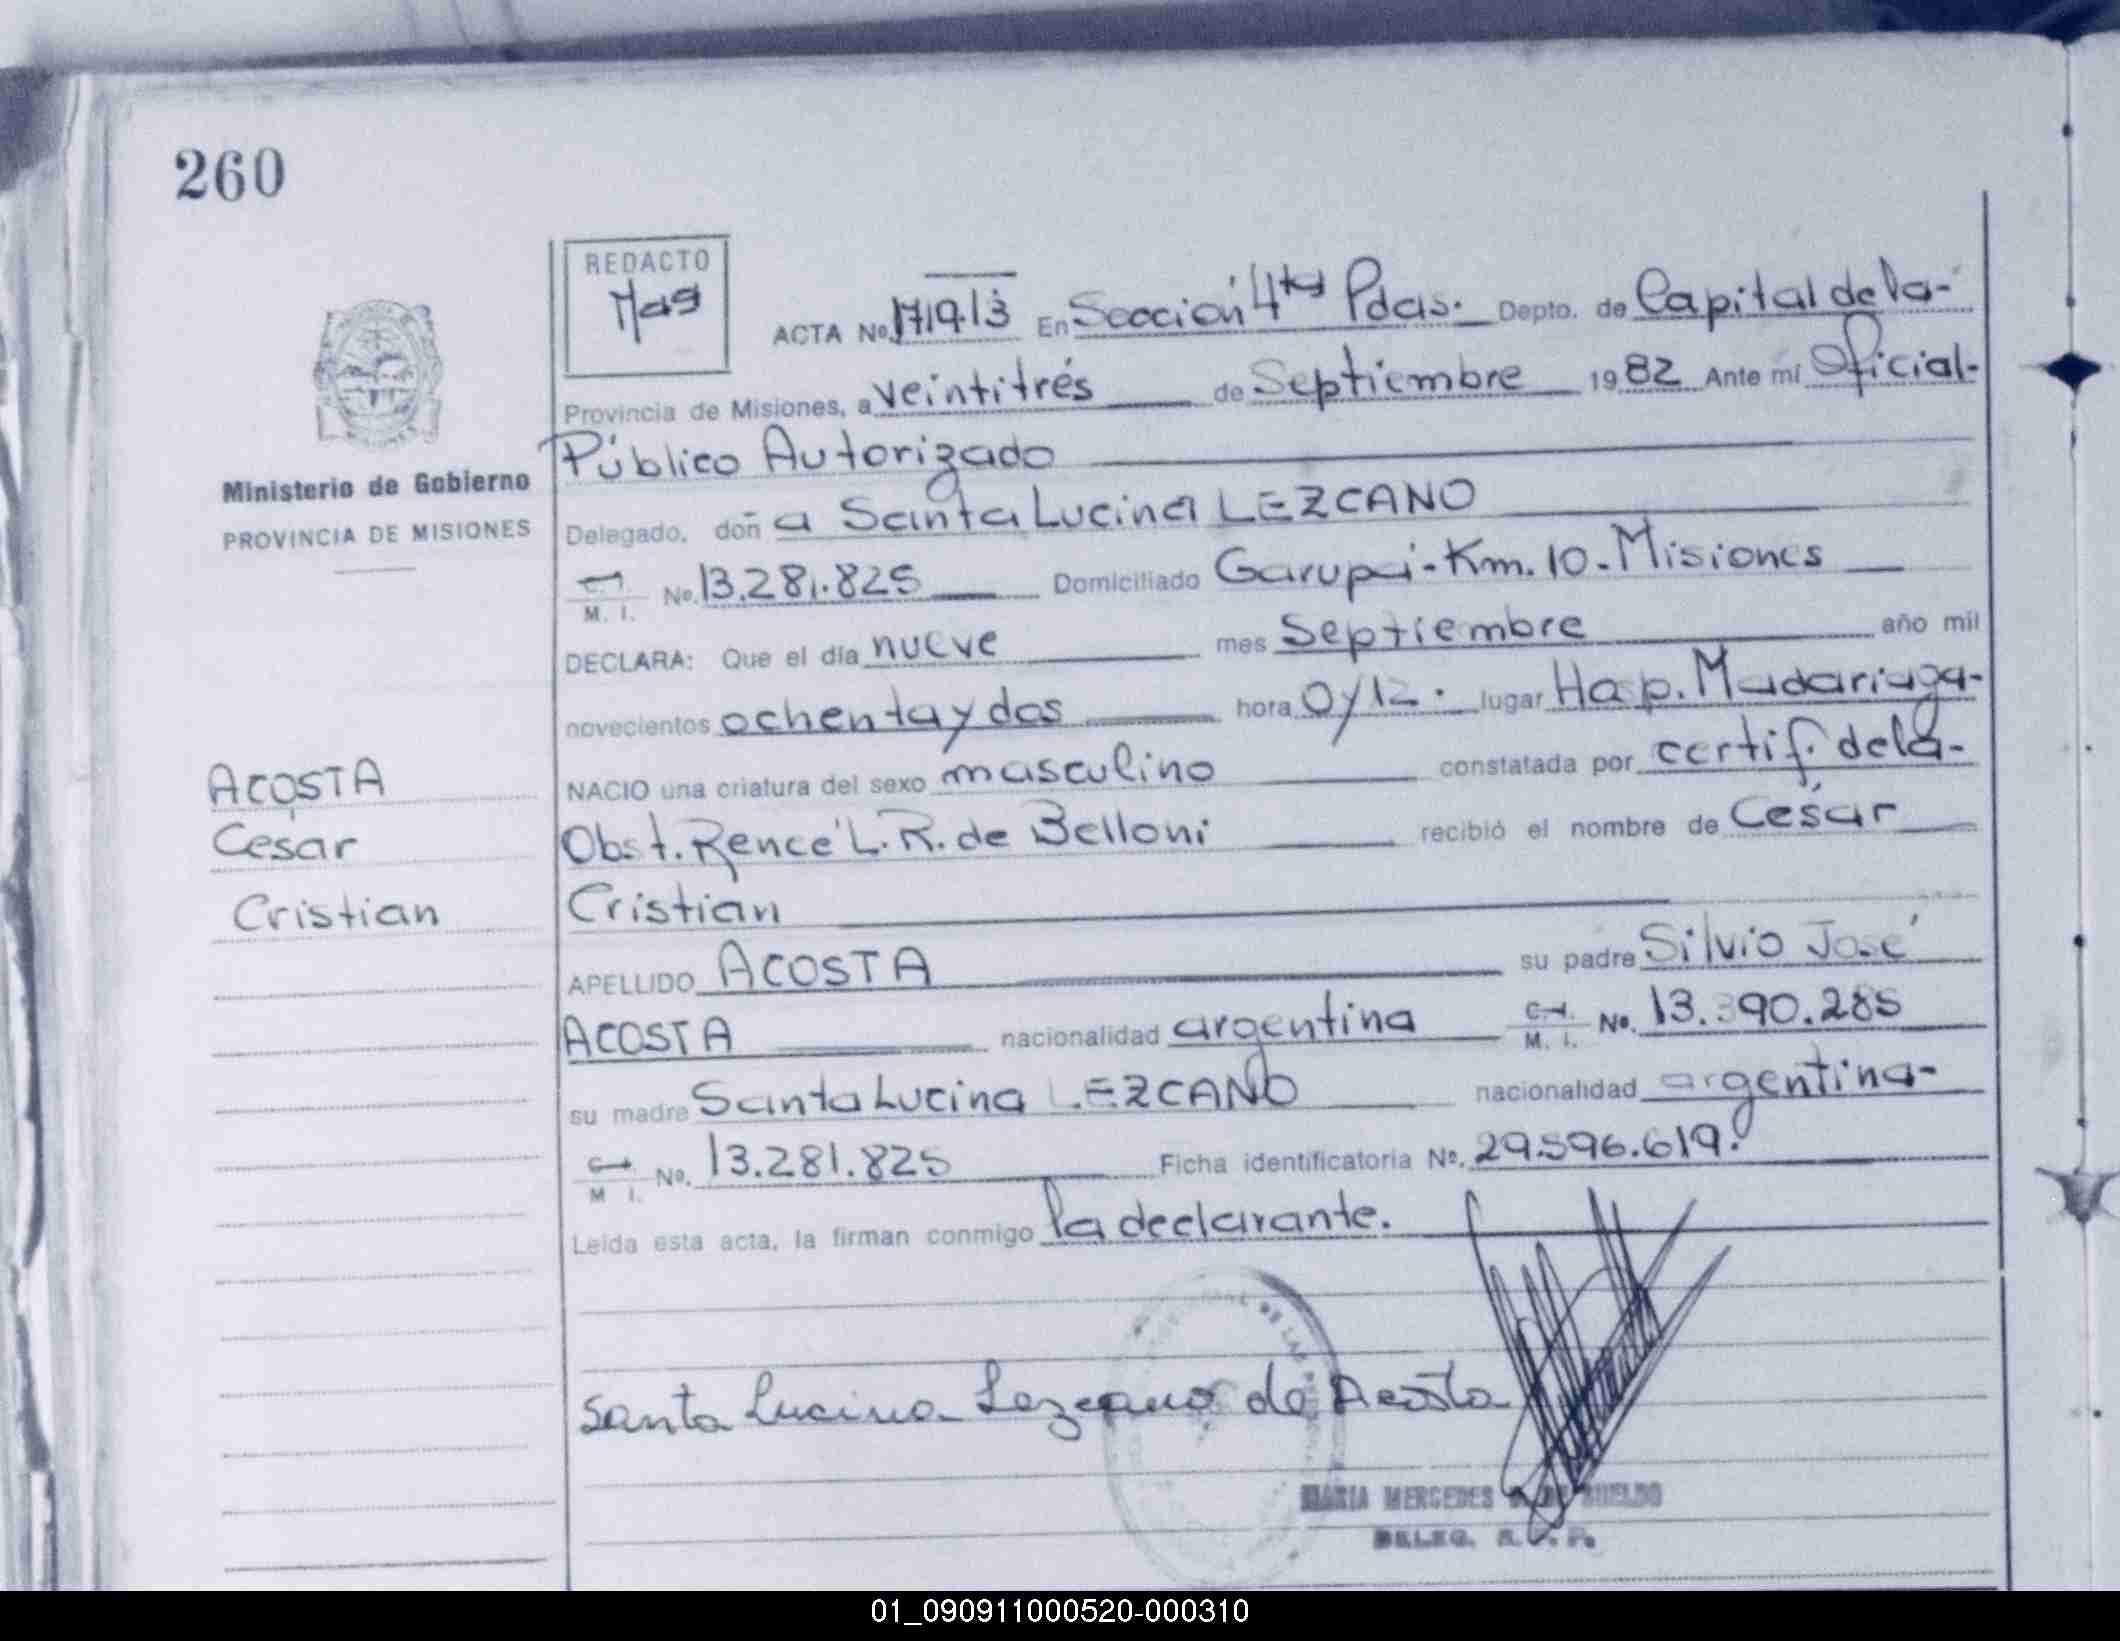 260
REDACTO
ACTA No. 17193 En Sección 4ta Pdas. Depto. de Capital de la-
Provincia de Misiones, a veintitrés de Septiembre 1982 Ante mí Oficial-
Público Autorizado
Ministerio de Gobierno
PROVINCIA DE MISIONES
Delegado, doñ a Santa Lucina LEZCANO
M. I. No. 13.281.825 Domiciliado Garupá-Km.10-Misiones
DECLARA: Que el día nueve mes Septiembre año mil
novecientos ochenta y dos hora 0/12. lugar Hosp. Madariaga-
NACIO una criatura del sexo masculino constatada por certif. de la-
ACOSTA
César
Cristian
Obst. Reneé L. R. de Belloni recibió el nombre de César
Cristian
APELLIDO ACOSTA su padre Silvio José
ACOSTA nacionalidad argentina C.I. M. I. No. 13.390.285
su madre Santa Lucina LEZCANO nacionalidad argentina-
M I. No. 13.281.825 Ficha identificatoria No. 29.596.619.
Leída esta acta, la firman conmigo la declarante.
Santa Lucina Lezcano de Acosta
MARIA MERCEDES
DELEG. R. P.
01_090911000520-000310